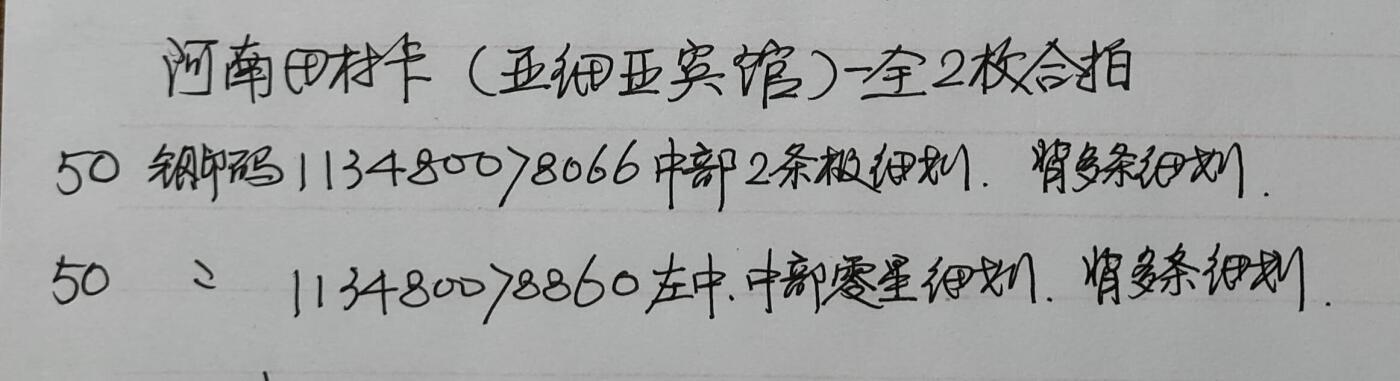 河南田村卡（亚细亚宾馆）-全2枚合拍
50 钢印码113480078066中部2条极细划．背多条细划．
50 〃 113480078860左中.中部零星细划．背多条细划．